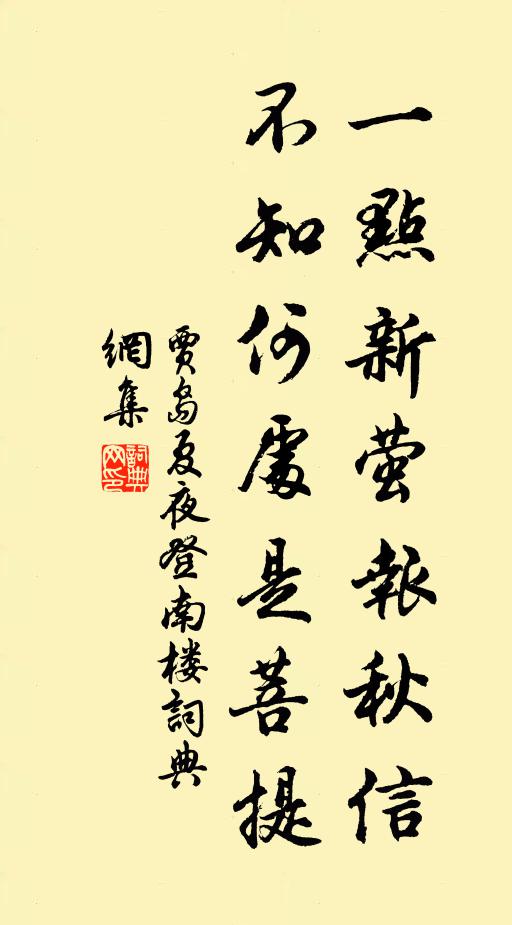 一點新螢報秋信
不知何處是菩提
賈島夏夜登南楼詞典
網集
詞典網印